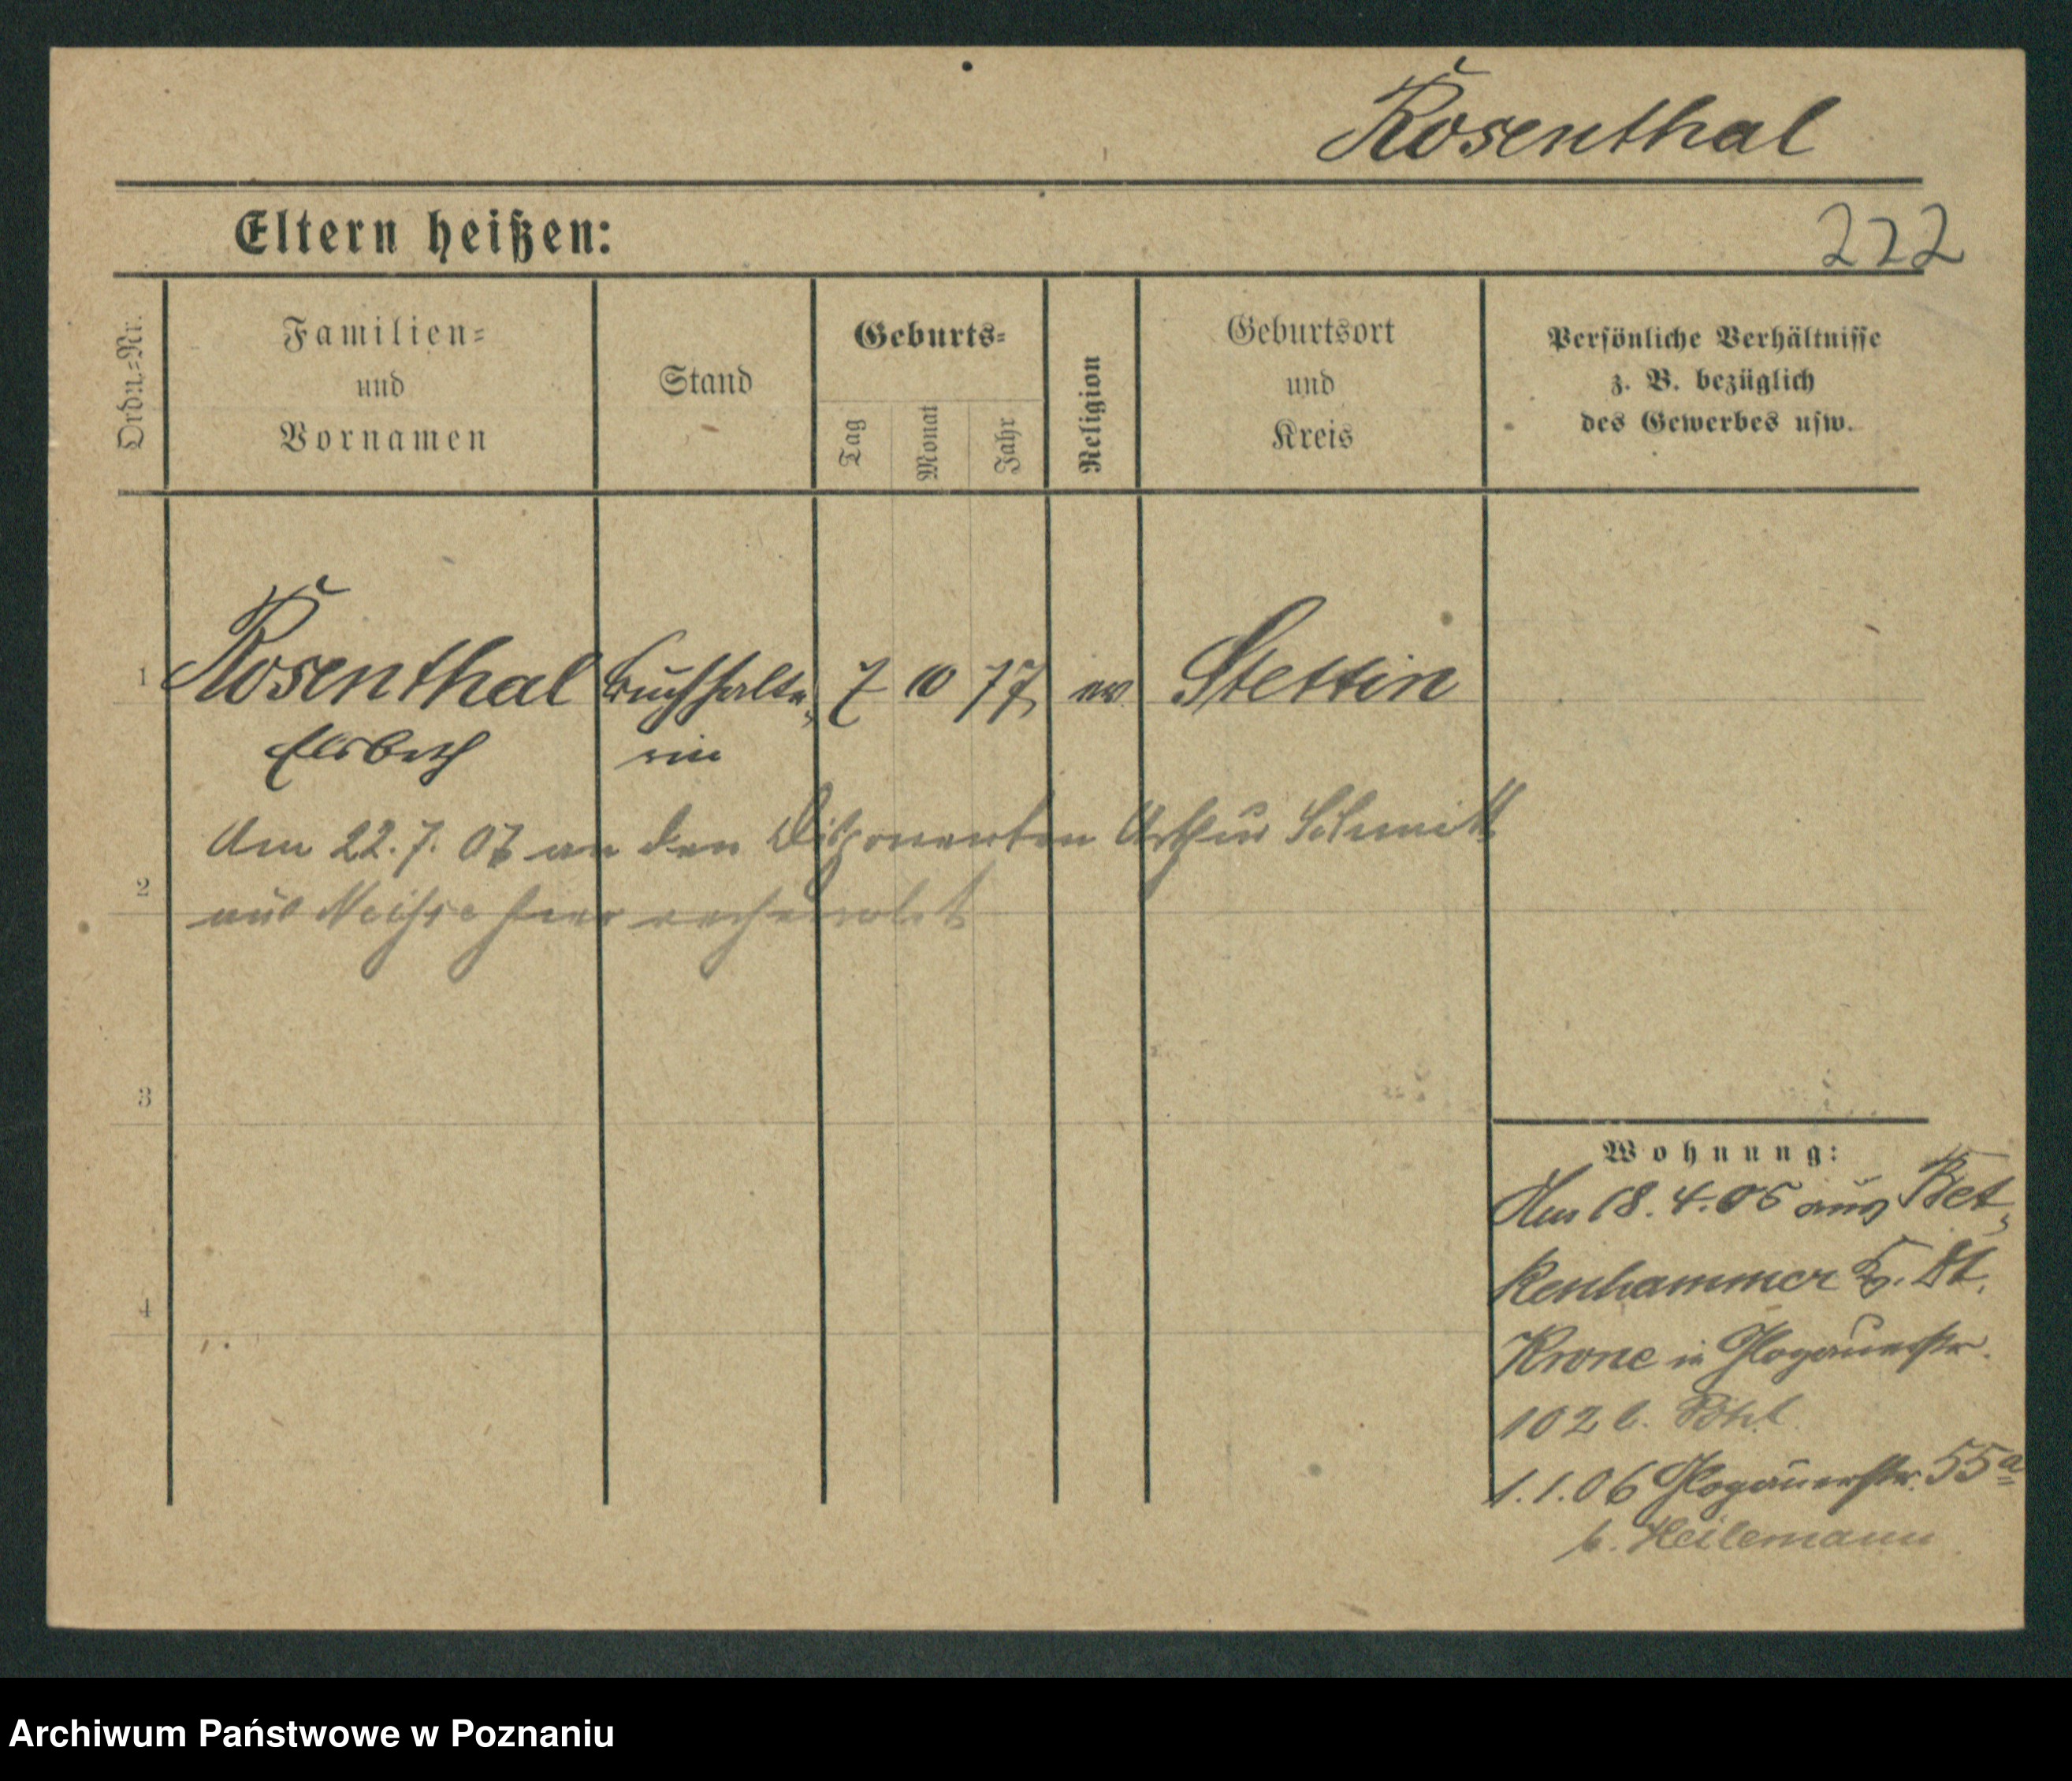 Rosenthal
Eltern heißen:
222
Ordn.=Nr.
Familien=
und
Vornamen
Stand
Geburts=
Tag
Monat
Jahr
Religion
Geburtsort
und
Kreis
Persönliche Verhältnisse
z. B. bezüglich
des Gewerbes usw.
1 Rosenthal Buchhalte, 7 10 77 ev Stettin
Elsbeth rin
Am 22.7.07 an den Disponenten Arthur Schmidt
2
aus Neisse hier verheiratet
3
4
Wohnung:
Am 18.4.05 aus Bet,
kenhammer Kr. Dt.
Krone in Glogauerstr.
102 b.
1.1.06 Glogauerstr. 55a
b. Heilemann
Archiwum Państwowe w Poznaniu